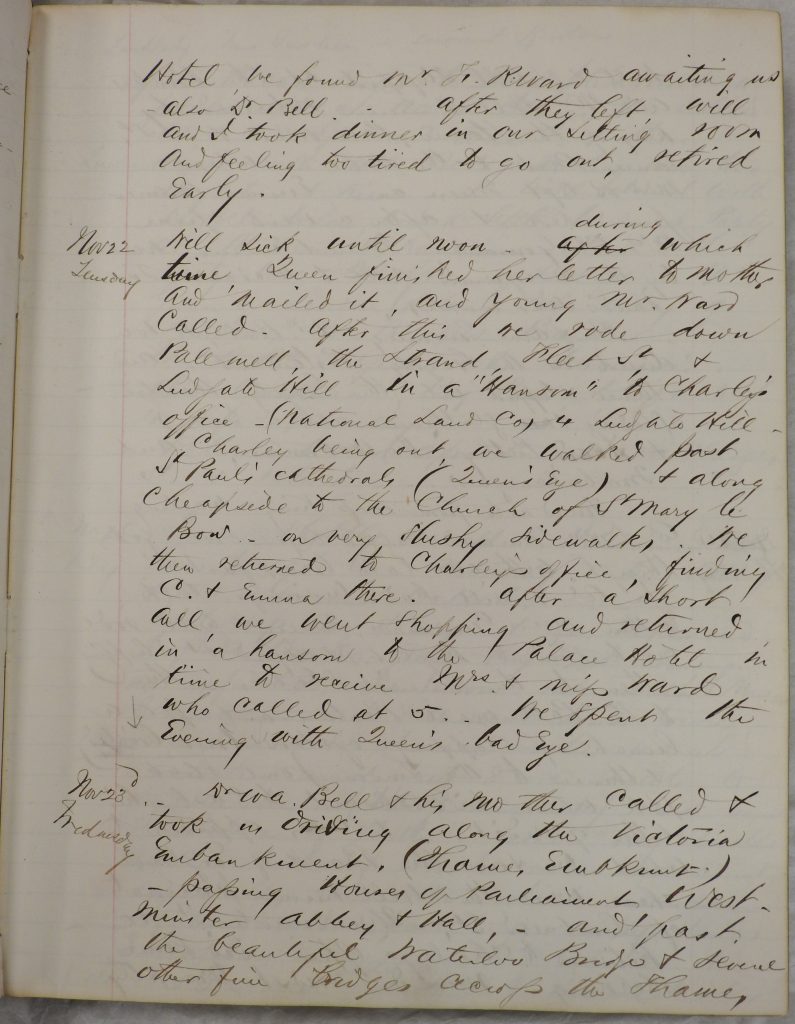 Hotel, we found Mr. Fr. R. Ward awaiting us
- also Dr. Bell. - after they left, Will
and I took dinner in our sitting room
and feeling too tired to go out, retired
Early.
Nov 22
Tuesday
Will sick until noon - after during which
time Queen finished her letter to Mother
and mailed it, and young Mr. Ward
called. After this we rode down
Palemell, the Strand, Fleet St &
Ludgate Hill in a "Hansom" to Charley's
office - (National Land Co, 4 Ludgate Hill -
Charley being out, we walked past
St Paul's cathedrals (Queen's Eye) & along
Cheapside to the Church of St Mary le
Bow - on very slushy sidewalks. We
then returned to Charley's office, finding
C. & Emma there. After a short
call we went shopping and returned
in a hansom to the Palace Hotel in
time to receive Mrs. & Miss Ward
who called at 5. - We spent the
Evening with Queen's bad Eye.
Nov 23d
Wednesday
- Dr Wa. Bell & his Mother called &
took us driving along the Victoria
Embankment, (Thames Embkmnt.)
- passing Houses of Parliament West-
minster abbey & Hall, - and past
the beautiful Waterloo Bridge &
other fine bridges across the Thames,